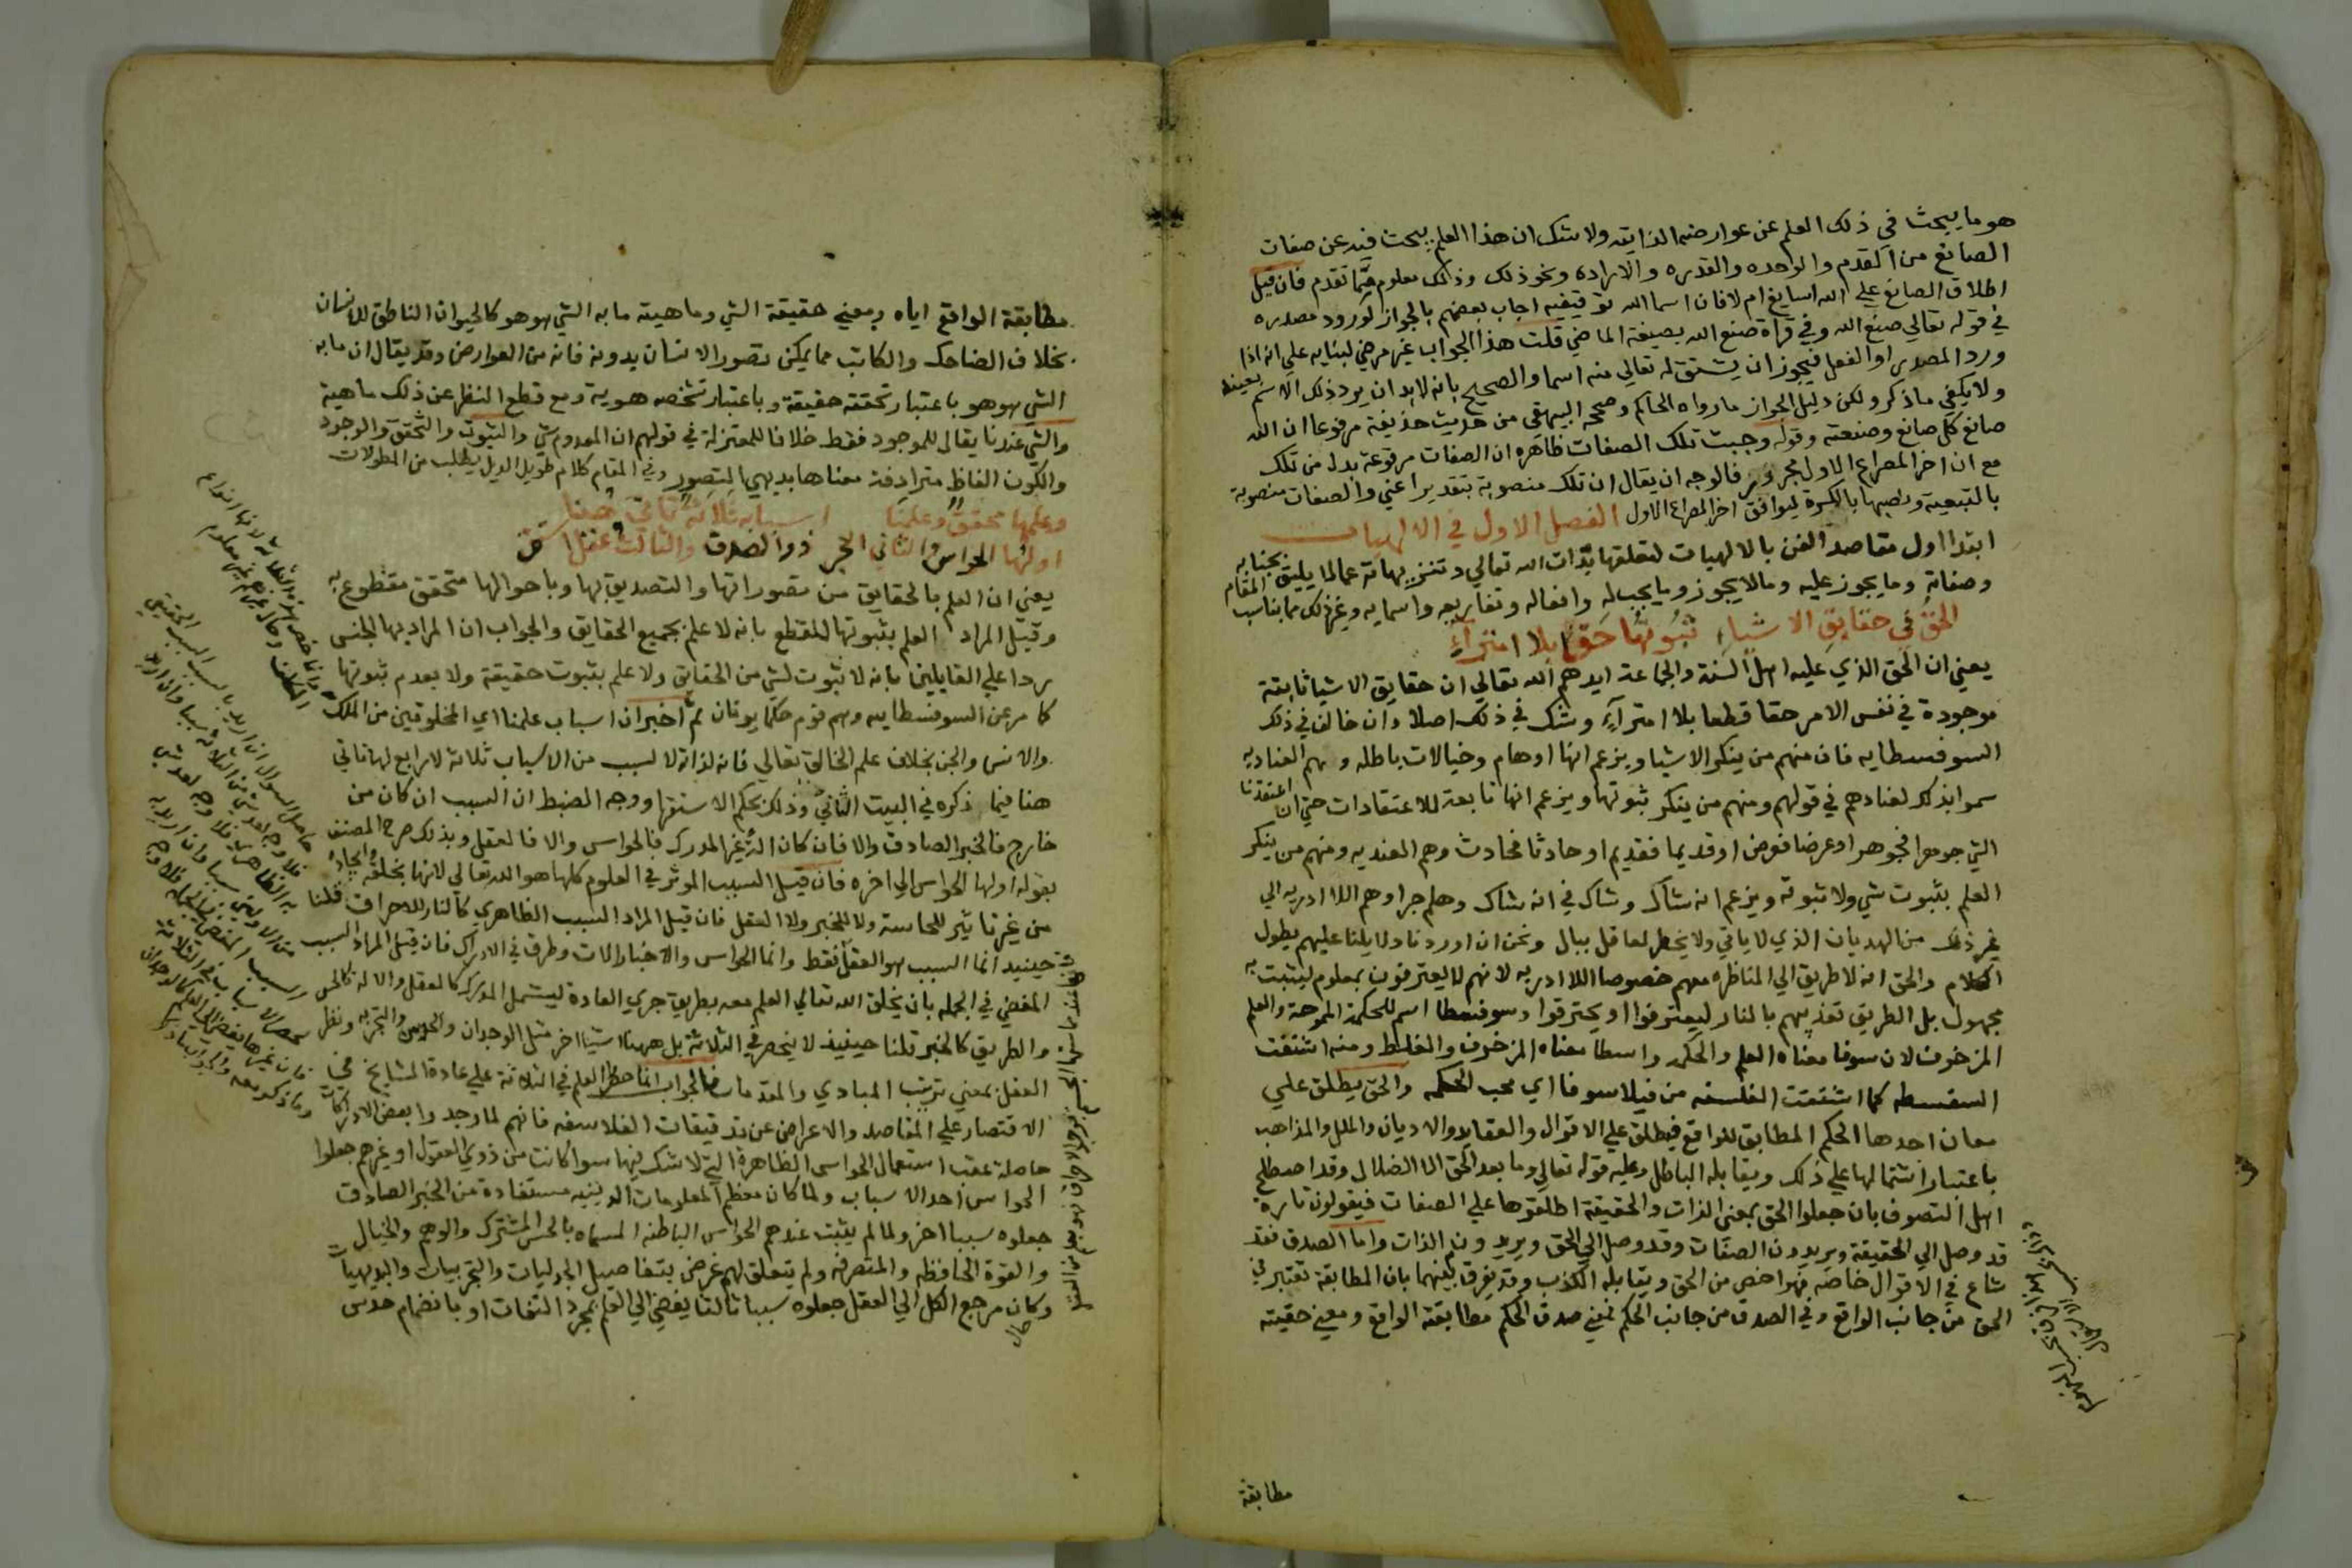 هو ما يبحث في ذلك العلم عن عوارضه الذاتيه ولا شك ان هذا العلم يبحث فيه عن صفات
الصانع من القدم والواحده والقدره والاراده ونحو ذلك وذلك معلوم مما تقدم فان قيل
اطلاق الصانع علي الله اسايغ ام لا فان اسما الله توقيفيه اجاب بعضهم بالجواز لورود مصدره
في قوله تعالي صنع الله وفي قراة صنع الله بصيغة الماضي قلت هذا الجواب غير مرضي لبنايه علي انه اذا
ورد المصدر او الفعل فيجوز ان يشتق له تعالي منه اسما والصحيح بانه لا بد ان يرد ذلك الاسم بعينه
ولا يكفي ما ذكر ولكن دليل الجواز ما رواه الحاكم وصححه البيهقي من حديث حذيفة مرفوعا ان الله
صانع كل صانع وصنعته وقوله وجبت تلك الصفات ظاهره ان الصفات مرفوعة بدل من تلك
مع ان اخر المصراع الاول مجرور فالوجه ان يقال ان تلك منصوبة بتقدير اعني والصفات منصوبة
بالتبعية ونصبها بالكسرة ليوافق اخر المصراع الاول الفصل الاول في الالهيات
ابتدا اول مقاصد الفن بالالهيات لتعلقها بذات الله تعالي وتنزيهاته عما لا يليق بجنابه
وصفاته وما يجوز عليه وما لا يجوز وما يجب له وافعاله وتفاريعه واسمايه وغير ذلك مما يناسب المقام
الحق في حقايق الاشياء ثبوتها حق بلا امتراء
يعني ان الحق الذي عليه اهل السنة والجماعة ايدهم الله تعالي ان حقايق الاشيا ثابتة
موجودة في نفس الامر حقا قطعا بلا امتراء وشك في ذلك اصلا وان خالف في ذلك
السوفسطايه فان منهم من ينكر الاشيا ويزعم انها اوهام وخيالات باطله وهم العناديه
سموا بذلك لعنادهم في قولهم ومنهم من ينكر ثبوتها ويزعم انها تابعة للاعتقادات حتي ان اعتقدنا
الشي جوهرا فجوهر او عرضا فعرض او قديما فقديم او حادثا فحادث وهم العنديه ومنهم من ينكر
العلم بثبوت شي ولا ثبوته ويزعم انه شاك وشاك في انه شاك وهلم جرا وهم اللا ادريه الي
غير ذلك من الهديان الذي لا ياتي ولا يخطر لعاقل ببال ونحن ان اوردنا دلايلنا عليهم يطول
الكلام والحق انه لا طريق الي المناظره معهم خصوصا اللا ادريه لانهم لا يعترفون بمعلوم ليثبت به
مجهول بل الطريق تعذيبهم بالنار ليعترفوا او يحترقوا وسوفسطا اسم للحكمة المموهة والعلم
المزخرف لان سوفا معناه العلم والحكمه واسطا معناه المزخرف والغلط ومنه اشتقت
السفسطه كما اشتقت الفلسفه من فيلاسوفا اي محب الحكمه والحق يطلق علي
معان احدها الحكم المطابق للواقع فيطلق علي الاقوال والعقايد والاديان والملل والمذاهب
باعتبار اشتمالها علي ذلك ويقابله الباطل وعليه قوله تعالي وما بعد الحق الا الضلال وقد اصطلح
اهل التصوف بان جعلوا الحق بمعني الذات والحقيقة اطلقوها علي الصفات فيقولون تارة
قد وصل الي الحقيقة ويريدون الصفات وقد وصل الي الحق ويريدون الذات واما الصدق فقد
شاع في الاقوال خاصه فهو اخص من الحق ويقابله الكذب وقد يفرق بينهما بان المطابقة تعتبر في
الحق من جانب الواقع وفي الصدق من جانب الحكم فمعني صدق الحكم مطابقة الواقع ومعني حقيته
مطابقة
مطابقة الواقع اياه ومعني حقيقة الشي وماهيته ما به الشي هو هو كالحيوان الناطق للانسان
بخلاف الضاحك والكاتب مما يمكن تصور الانسان بدونه فانه من العوارض وقد يقال ان ما به
الشي هو هو باعتبار تحققه حقيقة وباعتبار تشخصه هوية ومع قطع النظر عن ذلك ماهية
والشي عندنا يقال للموجود فقط خلافا للمعتزلة في قولهم ان المعدوم شي والثبوت والتحقق والوجود
والكون الفاظ مترادفة معناها بديهي التصور وفي المقام كلام طويل الذيل يطلب من المطولات
وعلمها محقق وعلمنا اسبابه ثلاثة تاتي هنا
اولها الحواس والثاني الخبر ذو الصدق والثالث عقل استقر
يعني ان العلم بالحقايق من تصوراتها والتصديق بها وباحوالها متحقق مقطوع به
وقيل المراد العلم بثبوتها للقطع بانه لا علم بجميع الحقايق والجواب ان المراد بها الجنس
ردا علي القايلين بانه لا ثبوت لشي من الحقايق ولا علم بثبوت حقيقة ولا بعدم ثبوتها
كما مر عن السوفسطاييه وهم قوم حكما يونان ثم اخبر ان اسباب علمنا اي المخلوقين من الملك
والانس والجن بخلاف علم الخالق تعالي فانه لذاته لا لسبب من الاسباب ثلاثة لا رابع لها تاتي
هنا فيما ذكره في البيت الثاني وذلك بحكم الاستقرا ووجه الضبط ان السبب ان كان من
خارج فالخبر الصادق والا فان كان الة غير المدرك فالحواس والا فالعقل وبذلك صرح المصنف
بقوله اولها الحواس الي اخره فان قيل السبب الموثر في العلوم كلها هو الله تعالي لانها بخلقه وايجاده
من غير تاثير للحاسة ولا للخبر ولا العقل فان قيل المراد السبب الظاهري كالنار للاحراق قلنا
حينيذ انما السبب هو العقل فقط وانما الحواس والاخبار الات وطرق في الادراك فان قيل المراد السبب
المفضي في الجمله بان يخلق الله تعالي العلم معه بطريق جري العادة ليشمل المدرك كالعقل والالة كالحس
والطريق كالخبر قلنا حينيذ لا ينحصر في الثلاثة بل ههنا اشيا اخر مثل الوجدان والحدس والتجربه ونظر
العقل بمعني ترتيب المبادي والمقدمات فالجواب انما حصر العلم في الثلاثة علي عادة المشايخ في
الاقتصار علي المقاصد والاعراض عن تدقيقات الفلاسفه فانهم لما وجدوا بعض الادراكات
حاصلة عقب استعمال الحواس الظاهرة التي لا شك فيها سوا كانت من ذوي العقول او غيرهم جعلوا
الحواس احد الاسباب ولما كان معظم المعلومات الدينيه مستفادة من الخبر الصادق
جعلوه سببا اخر ولما لم يثبت عندهم الحواس الباطنه المسماه بالحس المشترك والوهم والخيال
والقوة الحافظه والمتصرفه ولم يتعلق لهم غرض بتفاصيل الحدسيات والتجربيات والبديهيات
وكان مرجع الكل الي العقل جعلوه سببا ثالثا يفضي الي العلم بمجرد التفات او بانضمام حدس